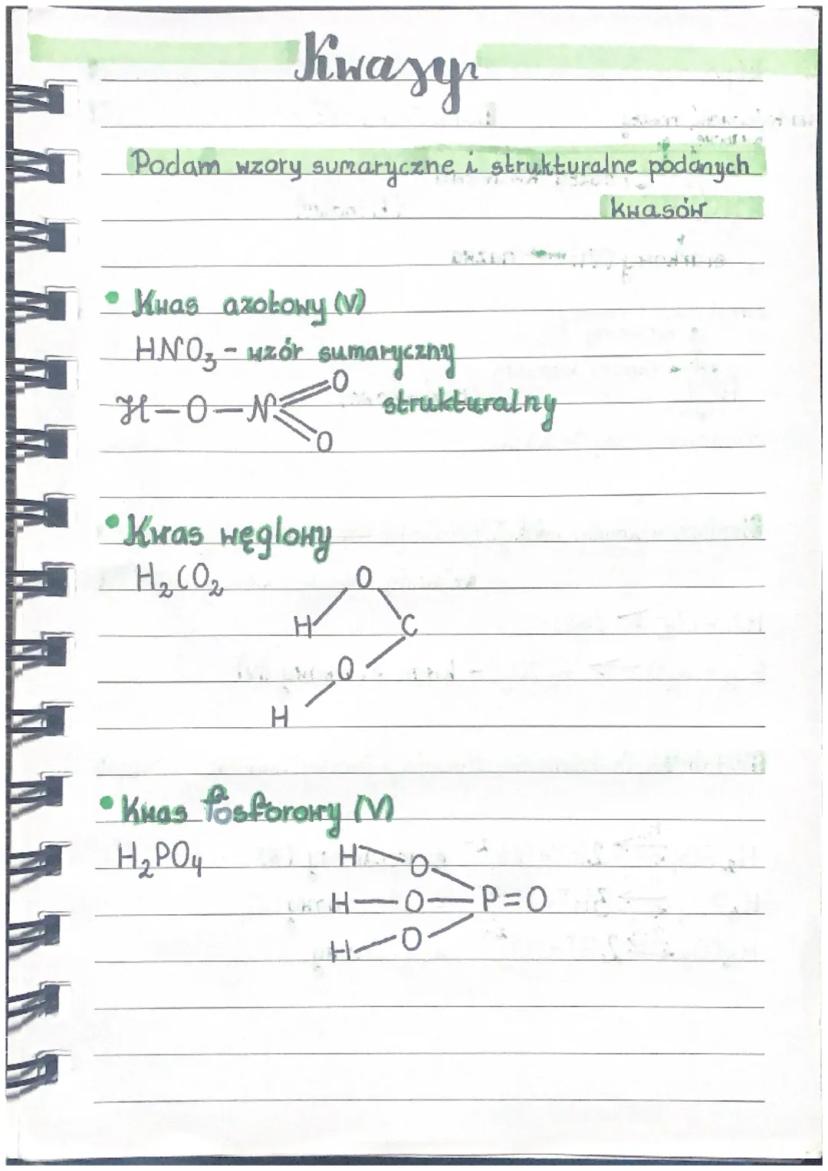 Kwasy
Podam wzory sumaryczne i strukturalne podanych
kwasów
• Kwas azotowy (V)
HNO₃ - wzór sumaryczny
H-O-N=O
=O
strukturalny
• Kwas węglowy
H₂CO₂
O
H C
O
H
• Kwas fosforowy (V)
H₂PO₄
H-O
H-O-P=O
H-O